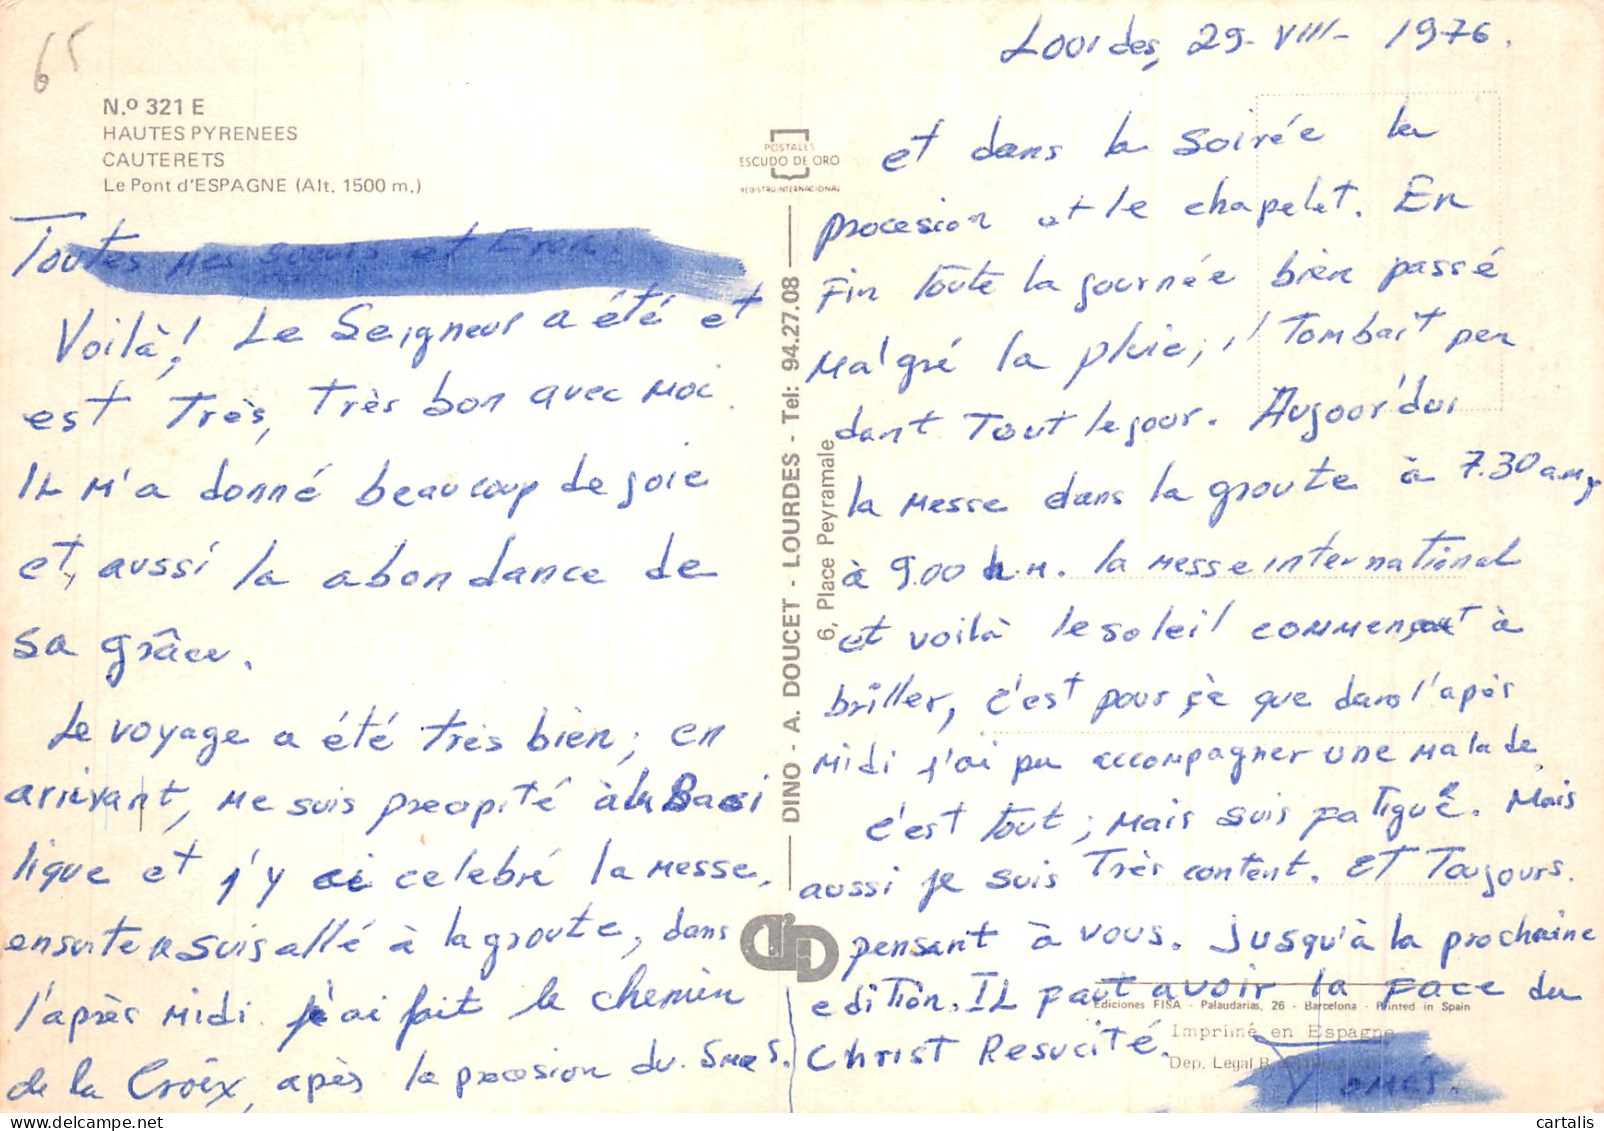 65
N.º 321 E
HAUTES PYRENEES
CAUTERETS
Le Pont d'ESPAGNE (Alt. 1500 m.)
POSTALES
ESCUDO DE ORO
REGISTRO INTERNACIONAL
DINO - A. DOUCET - LOURDES - Tel: 94.27.08
6, Place Peyramale
Toutes mes soeurs et
Voilà! Le Seigneur a été et
est très, très bon avec moi.
IL m'a donné beaucoup de joie
et, aussi la abondance de
sa grâce.
Le voyage a été très bien; en
arrivant, me suis precipité à la Basi
lique et j'y ai celebré la messe,
ensuite m suis allé à la groute, dans
l'après midi j'ai fait le chemin
de la Croix, après la procesion du Smes.
Lourdes, 29-VIII-1976.
et dans la soirée la
procesion et le chapelet. En
Fin toute la journée bien passé
malgré la pluie; il tombait pen
dant tout le jour. Aujoor'dui
la messe dans la groute à 7.30 a.m,
à 9.00 h.m. la messe international
et voilà le soleil commençait à
briller, c'est pour çè que dans l'après
midi j'ai pu accompagner une malade.
c'est tout; mais suis fatigué. Mais
aussi je suis très content. ET Toujours.
pensant à vous. Jusqu'à la prochaine
edition. IL faut avoir la face du
Christ Resucité.
Ediciones FISA - Palaudarias, 26 - Barcelona - Printed in Spain
Imprimé en Espagne
Dep. Legal B.
cartalis